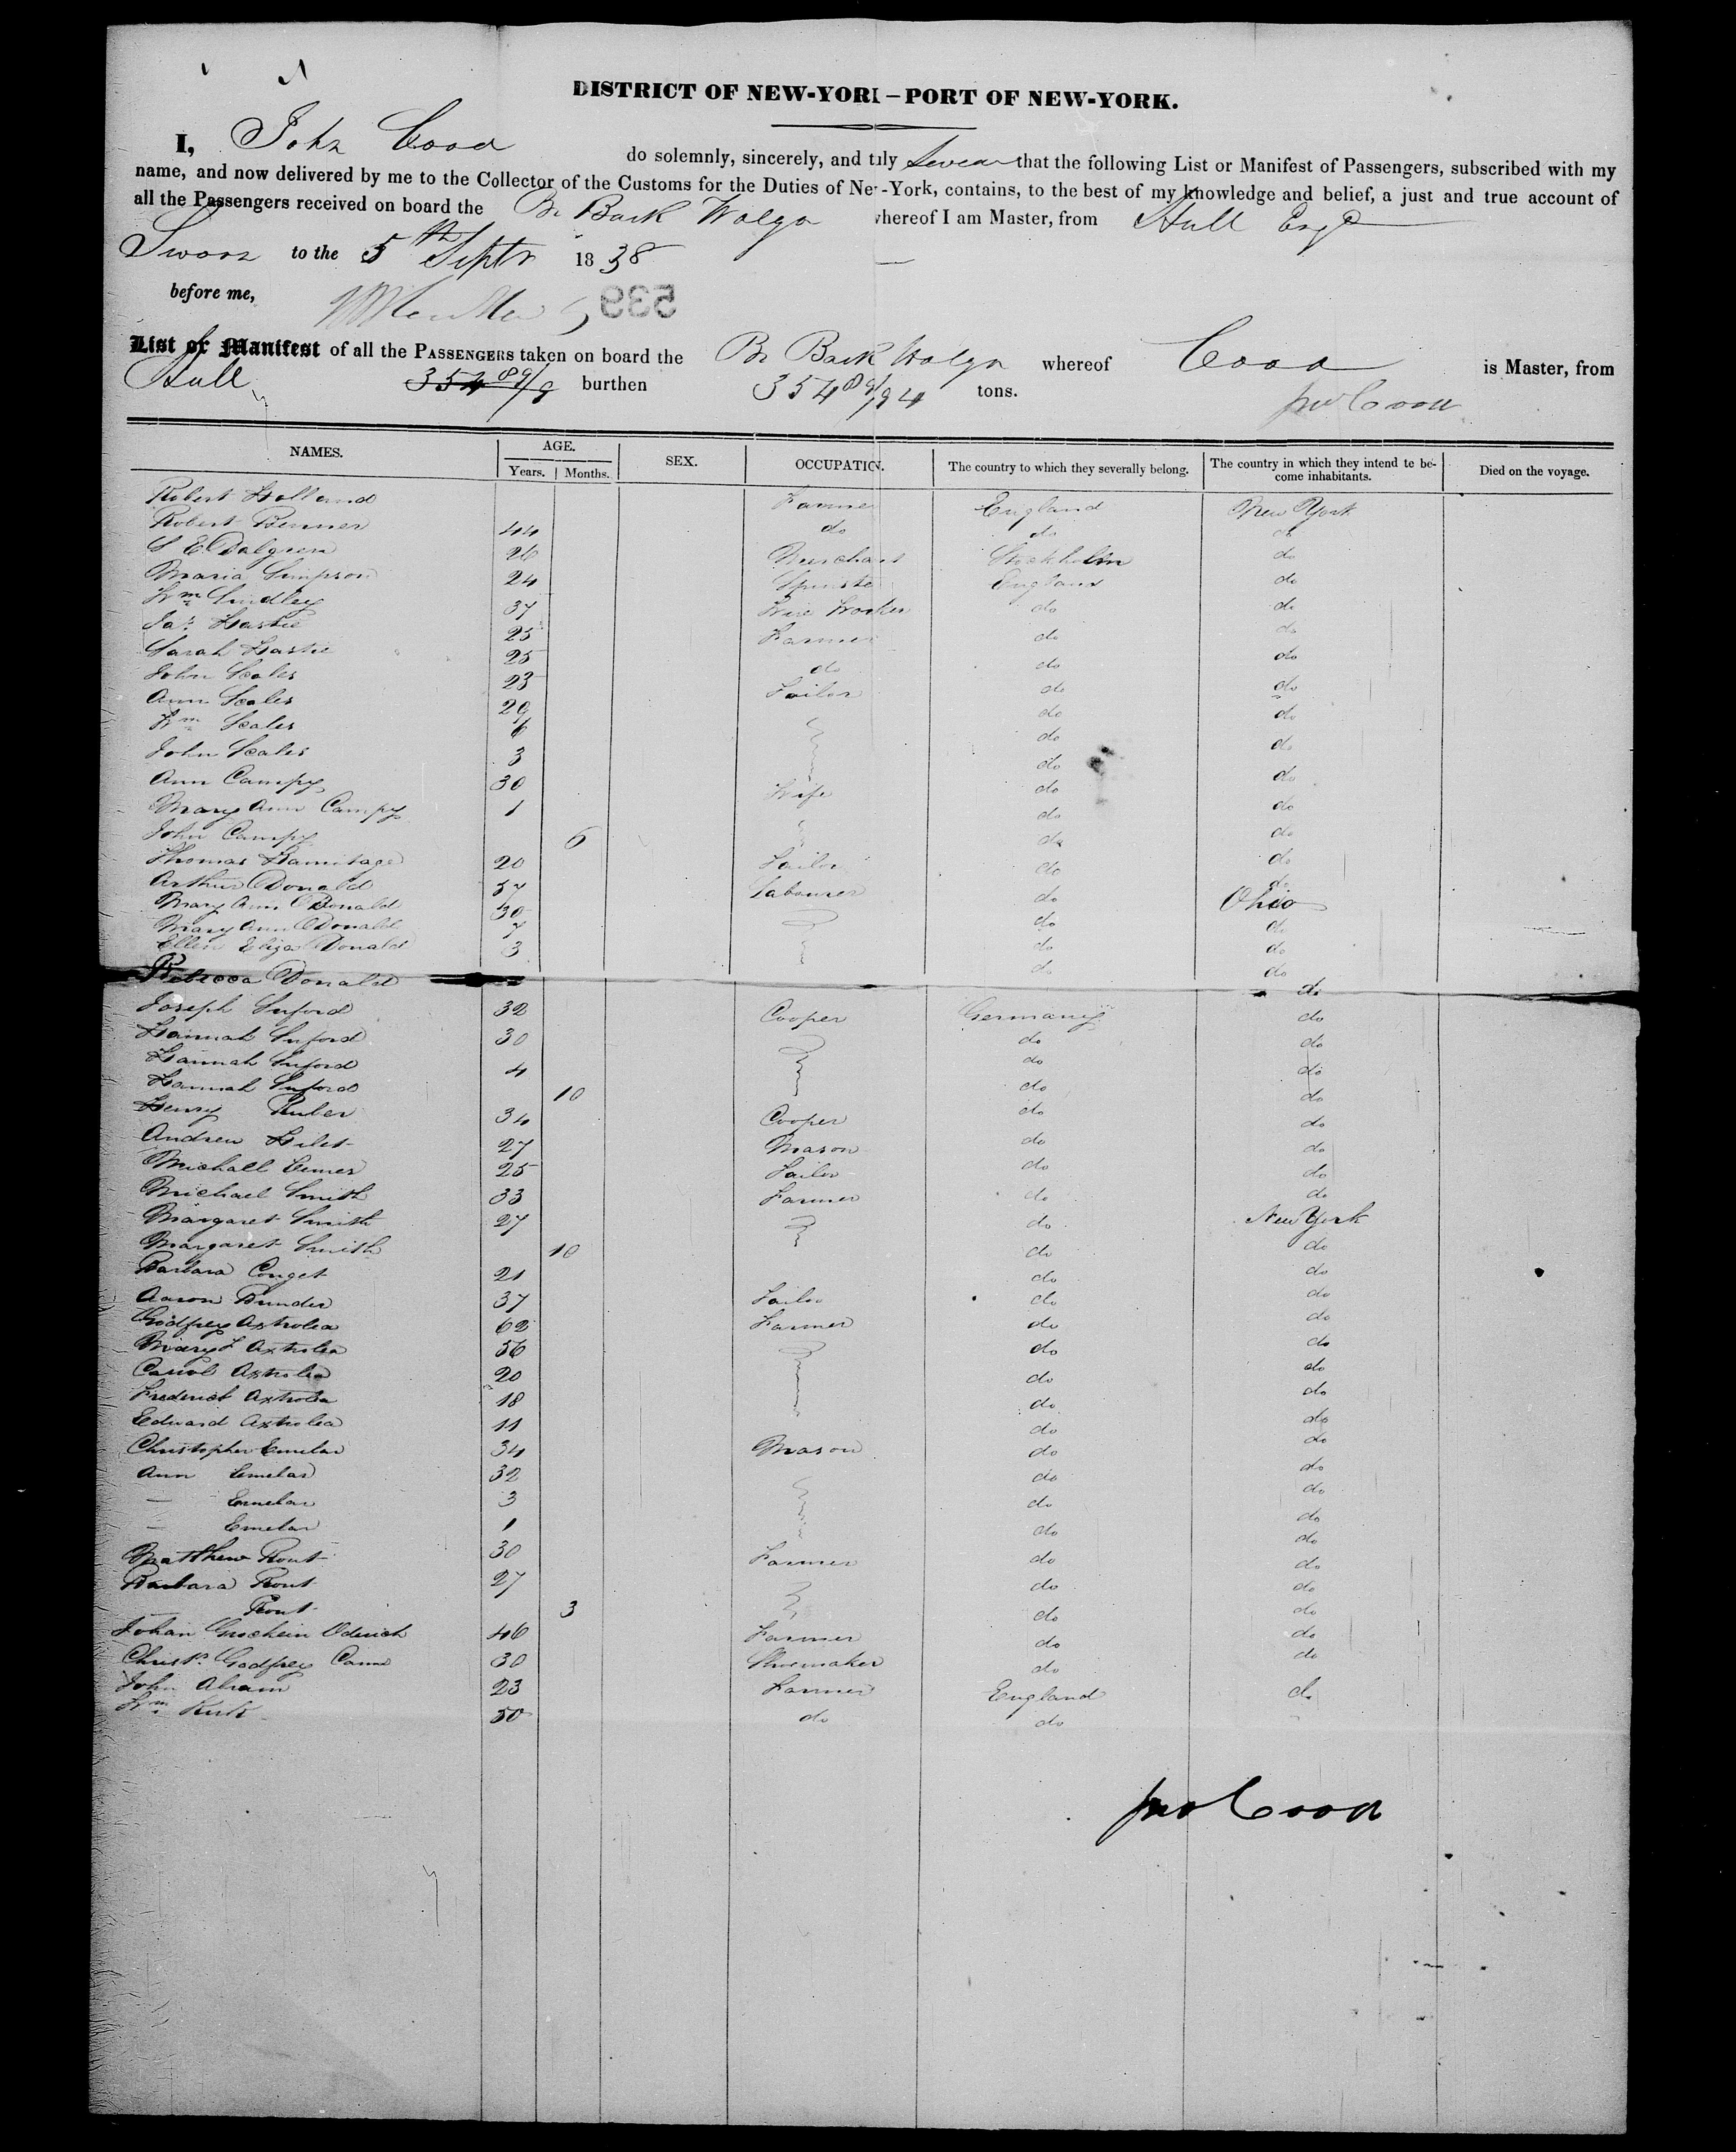 DISTRICT OF NEW-YORK - PORT OF NEW-YORK.
I, John Cood do solemnly, sincerely, and truly Swear that the following List or Manifest of Passengers, subscribed with my
name, and now delivered by me to the Collector of the Customs for the Duties of New-York, contains, to the best of my knowledge and belief, a just and true account of
all the Passengers received on board the Br Bark Wolga whereof I am Master, from Hull Engd
Sworn to the 5th Septr 1838
before me,
539
List or Manifest of all the PASSENGERS taken on board the Br Bark Wolga whereof Cood is Master, from
Hull 354 89/9 burthen 354 89/94 tons.
Jno Cood
NAMES. AGE. SEX. OCCUPATION. The country to which they severally belong. The country in which they intend te become inhabitants. Died on the voyage.
Years. Months.
Robert Holland Farmer England New York
Robert Benner 44 do do do
S E Dalgren 26 Merchant Stockholm do
Maria Simpson 24 Spinster England do
Wm Lindley 37 Wire Worker do do
Jas Hastie 25 Farmer do do
Sarah Hastie 25 do do do
John Scales 23 Tailor do do
Ann Scales 29 do do
Wm Scales 6 do do
John Scales 3 do do
Ann Campy 30 Wife do do
Mary Ann Campy 1 do do
John Campy 6 do do
Thomas Harmitage 20 Tailor do do
Arthur Donald 37 Labourer do Ohio
Mary Ann Donald 30 do do
Mary Ann Donald 7 do do
Ellen Eliza Donald 3 do do
Rebecca Donald do
Joseph Suford 32 Cooper Germany do
Hannah Suford 30 do do
Hannah Suford 4 do do
Hannah Suford 10 do do
Henry Ruber 34 Cooper do do
Andrew Hilet 27 Mason do do
Michall Eemer 25 Tailor do do
Michael Smith 33 Farmer do do
Margaret Smith 27 do New York
Margaret Smith 10 do do
Barbara Conget 21 do do
Aaron Bunder 37 Tailor do do
Godfrey Axtrolea 62 Farmer do do
Mary F Axtrolea 56 do do
Carrol Axtrolea 20 do do
Frederick Axtrolea 18 do do
Edward Axtrolea 11 do do
Christopher Emelar 34 Mason do do
Ann Emelar 32 do do
— Emelar 3 do do
— Emelar 1 do do
Matthew Rout 30 Farmer do do
Barbara Rout 27 do do
— Rout 3 do do
Johan Oderich 46 Farmer do do
Christr Godfrey 30 Shoemaker do do
John Abram 23 Farmer England do
Wm Kirk 50 do do
Jno Cood